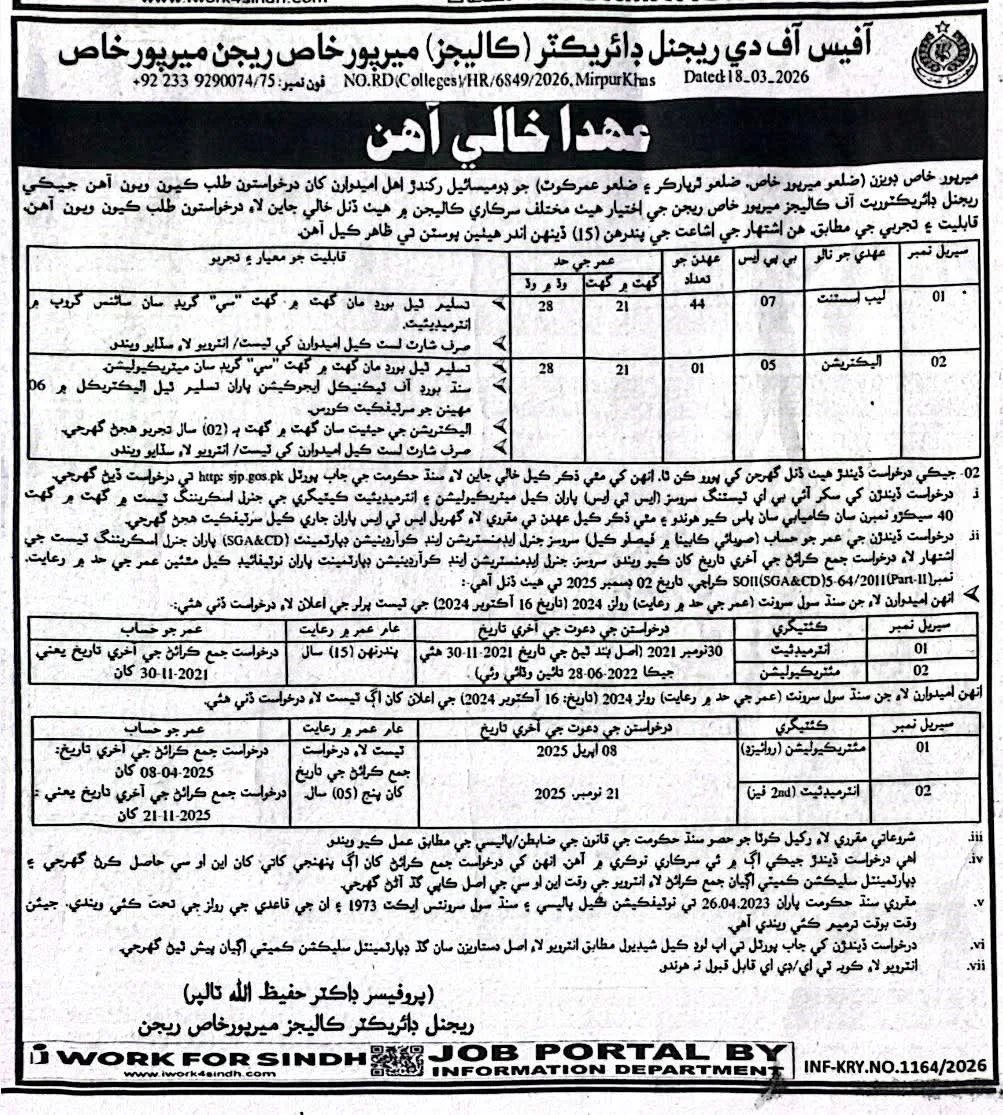 www.iwork4sindh.com
آفيس آف دي ريجنل ڊائريڪٽر (ڪاليجز) ميرپورخاص ريجن ميرپورخاص
فون نمبر: +92 233 9290074/75 NO.RD(Colleges)/HR/6849/2026, MirpurKhas Dated:18-03-2026
عهدا خالي آهن
ميرپور خاص ڊويزن (ضلعو ميرپور خاص، ضلعو ٿرپارڪر ۽ ضلعو عمرڪوٽ) جو ڊوميسائيل رکندڙ اهل اميدوارن کان درخواستون طلب ڪيون ويون آهن جيڪي
ريجنل ڊائريڪٽوريٽ آف ڪاليجز ميرپور خاص ريجن جي اختيار هيٺ مختلف سرڪاري ڪاليجن ۾ هيٺ ڏنل خالي جاين لاءِ درخواستون طلب ڪيون ويون آهن.
قابليت ۽ تجربي جي مطابق. هن اشتهار جي اشاعت جي پندرهن (15) ڏينهن اندر هيٺين پوسٽن تي ظاهر ڪيل آهن.
سيريل نمبر عهدي جو نالو بي پي ايس عهدن جو تعداد عمر جي حد قابليت جو معيار ۽ تجربو
گهٽ ۾ گهٽ وڌ ۾ وڌ
01 ليب اسسٽنٽ 07 44 21 28 تسليم ٿيل بورڊ مان گهٽ ۾ گهٽ "سي" گريڊ سان سائنس گروپ ۾
انٽرميڊيئيٽ.
صرف شارٽ لسٽ ڪيل اميدوارن کي ٽيسٽ/ انٽرويو لاءِ سڏايو ويندو.
02 اليڪٽريشن 05 01 21 28 تسليم ٿيل بورڊ مان گهٽ ۾ گهٽ "سي" گريڊ سان ميٽريڪيوليشن.
سنڌ بورڊ آف ٽيڪنيڪل ايجوڪيشن پاران تسليم ٿيل اليڪٽريڪل ۾ 06
مهينن جو سرٽيفڪيٽ ڪورس.
اليڪٽريشن جي حيثيت سان گهٽ ۾ گهٽ ٻه (02) سال تجربو هجڻ گهرجي.
صرف شارٽ لسٽ ڪيل اميدوارن کي ٽيسٽ/ انٽرويو لاءِ سڏايو ويندو.
02. جيڪي درخواست ڏيندڙ هيٺ ڏنل گهرجن کي پورو ڪن ٿا. انهن کي مٿي ذڪر ڪيل خالي جاين لاءِ سنڌ حڪومت جي جاب پورٽل http: sjp.gos.pk تي درخواست ڏيڻ گهرجي.
i. درخواست ڏيندڙن کي سکر آئي بي اي ٽيسٽنگ سروسز (ايس ٽي ايس) پاران ڪيل ميٽريڪيوليشن ۽ انٽرميڊيئيٽ ڪيٽيگري جي جنرل اسڪريننگ ٽيسٽ ۾ گهٽ ۾ گهٽ
40 سيڪڙو نمبرن سان ڪاميابي سان پاس ڪيو هوندو ۽ مٿي ذڪر ڪيل عهدن تي مقرري لاءِ گهربل ايس ٽي ايس پاران جاري ڪيل سرٽيفڪيٽ هجڻ گهرجي.
ii. درخواست ڏيندڙن جي عمر جو حساب (صوبائي ڪابينا ۾ فيصلو ڪيل) سروسز جنرل ايڊمنسٽريشن اينڊ ڪوآرڊينيشن ڊپارٽمينٽ (SGA&CD) پاران جنرل اسڪريننگ ٽيسٽ جي
اشتهار لاءِ درخواست جمع ڪرائڻ جي آخري تاريخ کان ڪيو ويندو سروسز، جنرل ايڊمنسٽريشن اينڊ ڪوآرڊينيشن ڊپارٽمينٽ پاران نوٽيفائيڊ ڪيل مٿئين عمر جي حد ۾ رعايت.
نمبر SOII(SGA&CD)5-64/2011(Part-II) ڪراچي، تاريخ 02 ڊسمبر 2025 تي هيٺ ڏنل آهي:-
انهن اميدوارن لاءِ جن سنڌ سول سرونٽ (عمر جي حد ۾ رعايت) رولز 2024 (تاريخ 16 آڪٽوبر 2024) جي ٽيسٽ پرلر جي اعلان لاءِ درخواست ڏني هئي:-
سيريل نمبر ڪئٽيگري درخواستن جي دعوت جي آخري تاريخ عام عمر ۾ رعايت عمر جو حساب
01 انٽرميڊئيٽ 30نومبر 2021 (اصل بند ٿيڻ جي تاريخ 30-11-2021 هئي پندرنهن (15) سال درخواست جمع ڪرائڻ جي آخري تاريخ يعني
02 مئٽريڪيوليشن جيڪا 28-06-2022 تائين وڌائي وئي) 30-11-2021 کان
انهن اميدوارن لاءِ جن سنڌ سول سرونٽ (عمر جي حد ۾ رعايت) رولز 2024 (تاريخ: 16 آڪٽوبر 2024) جي اعلان کان اڳ ٽيسٽ لاءِ درخواست ڏني هئي.
سيريل نمبر ڪئٽيگري درخواستن جي دعوت جي آخري تاريخ عام عمر ۾ رعايت عمر جو حساب
01 مئٽريڪيوليشن (روائيزڊ) 08 اپريل 2025 ٽيسٽ لاءِ درخواست درخواست جمع ڪرائڻ جي آخري تاريخ:
جمع ڪرائڻ جي تاريخ 08-04-2025 کان
02 انٽرميڊئيٽ (2nd فيز) 21 نومبر، 2025 کان پنج (05) سال درخواست جمع ڪرائڻ جي آخري تاريخ يعني :
21-11-2025 کان
iii. شروعاتي مقرري لاءِ رکيل ڪوٽا جو حصو سنڌ حڪومت جي قانون جي ضابطن/پاليسي جي مطابق عمل ڪيو ويندو.
iv. اهي درخواست ڏيندڙ جيڪي اڳ ۾ ئي سرڪاري نوڪري ۾ آهن. انهن کي درخواست جمع ڪرائڻ کان اڳ پنهنجي کاتي کان اين او سي حاصل ڪرڻ گهرجي ۽
ڊپارٽمينٽل سليڪشن ڪميٽي اڳيان جمع ڪرائڻ لاءِ انٽرويو جي وقت اين او سي جي اصل ڪاپي گڏ آڻڻ گهرجي.
v. مقرري سنڌ حڪومت پاران 26.04.2023 تي نوٽيفڪيشن ڪيل پاليسي ۽ سنڌ سول سرونٽس ايڪٽ 1973 ۽ ان جي قاعدي جي رولز جي تحت ڪئي ويندي. جيئن
وقت بوقت ترميم ڪئي ويندي آهي.
vi. درخواست ڏيندڙن کي جاب پورٽل تي اپ لوڊ ڪيل شيڊيول مطابق انٽرويو لاءِ اصل دستاويزن سان گڏ ڊپارٽمينٽل سليڪشن ڪميٽي اڳيان پيش ٿيڻ گهرجي.
vii. انٽرويو لاءِ ڪوبه ٽي اي/ڊي اي قابل قبول نه هوندو
(پروفيسر ڊاڪٽر حفيظ الله ٽالپر)
ريجنل ڊائريڪٽر ڪاليجز ميرپورخاص ريجن
i WORK FOR SINDH JOB PORTAL BY
www.iwork4sindh.com INFORMATION DEPARTMENT INF-KRY.NO.1164/2026